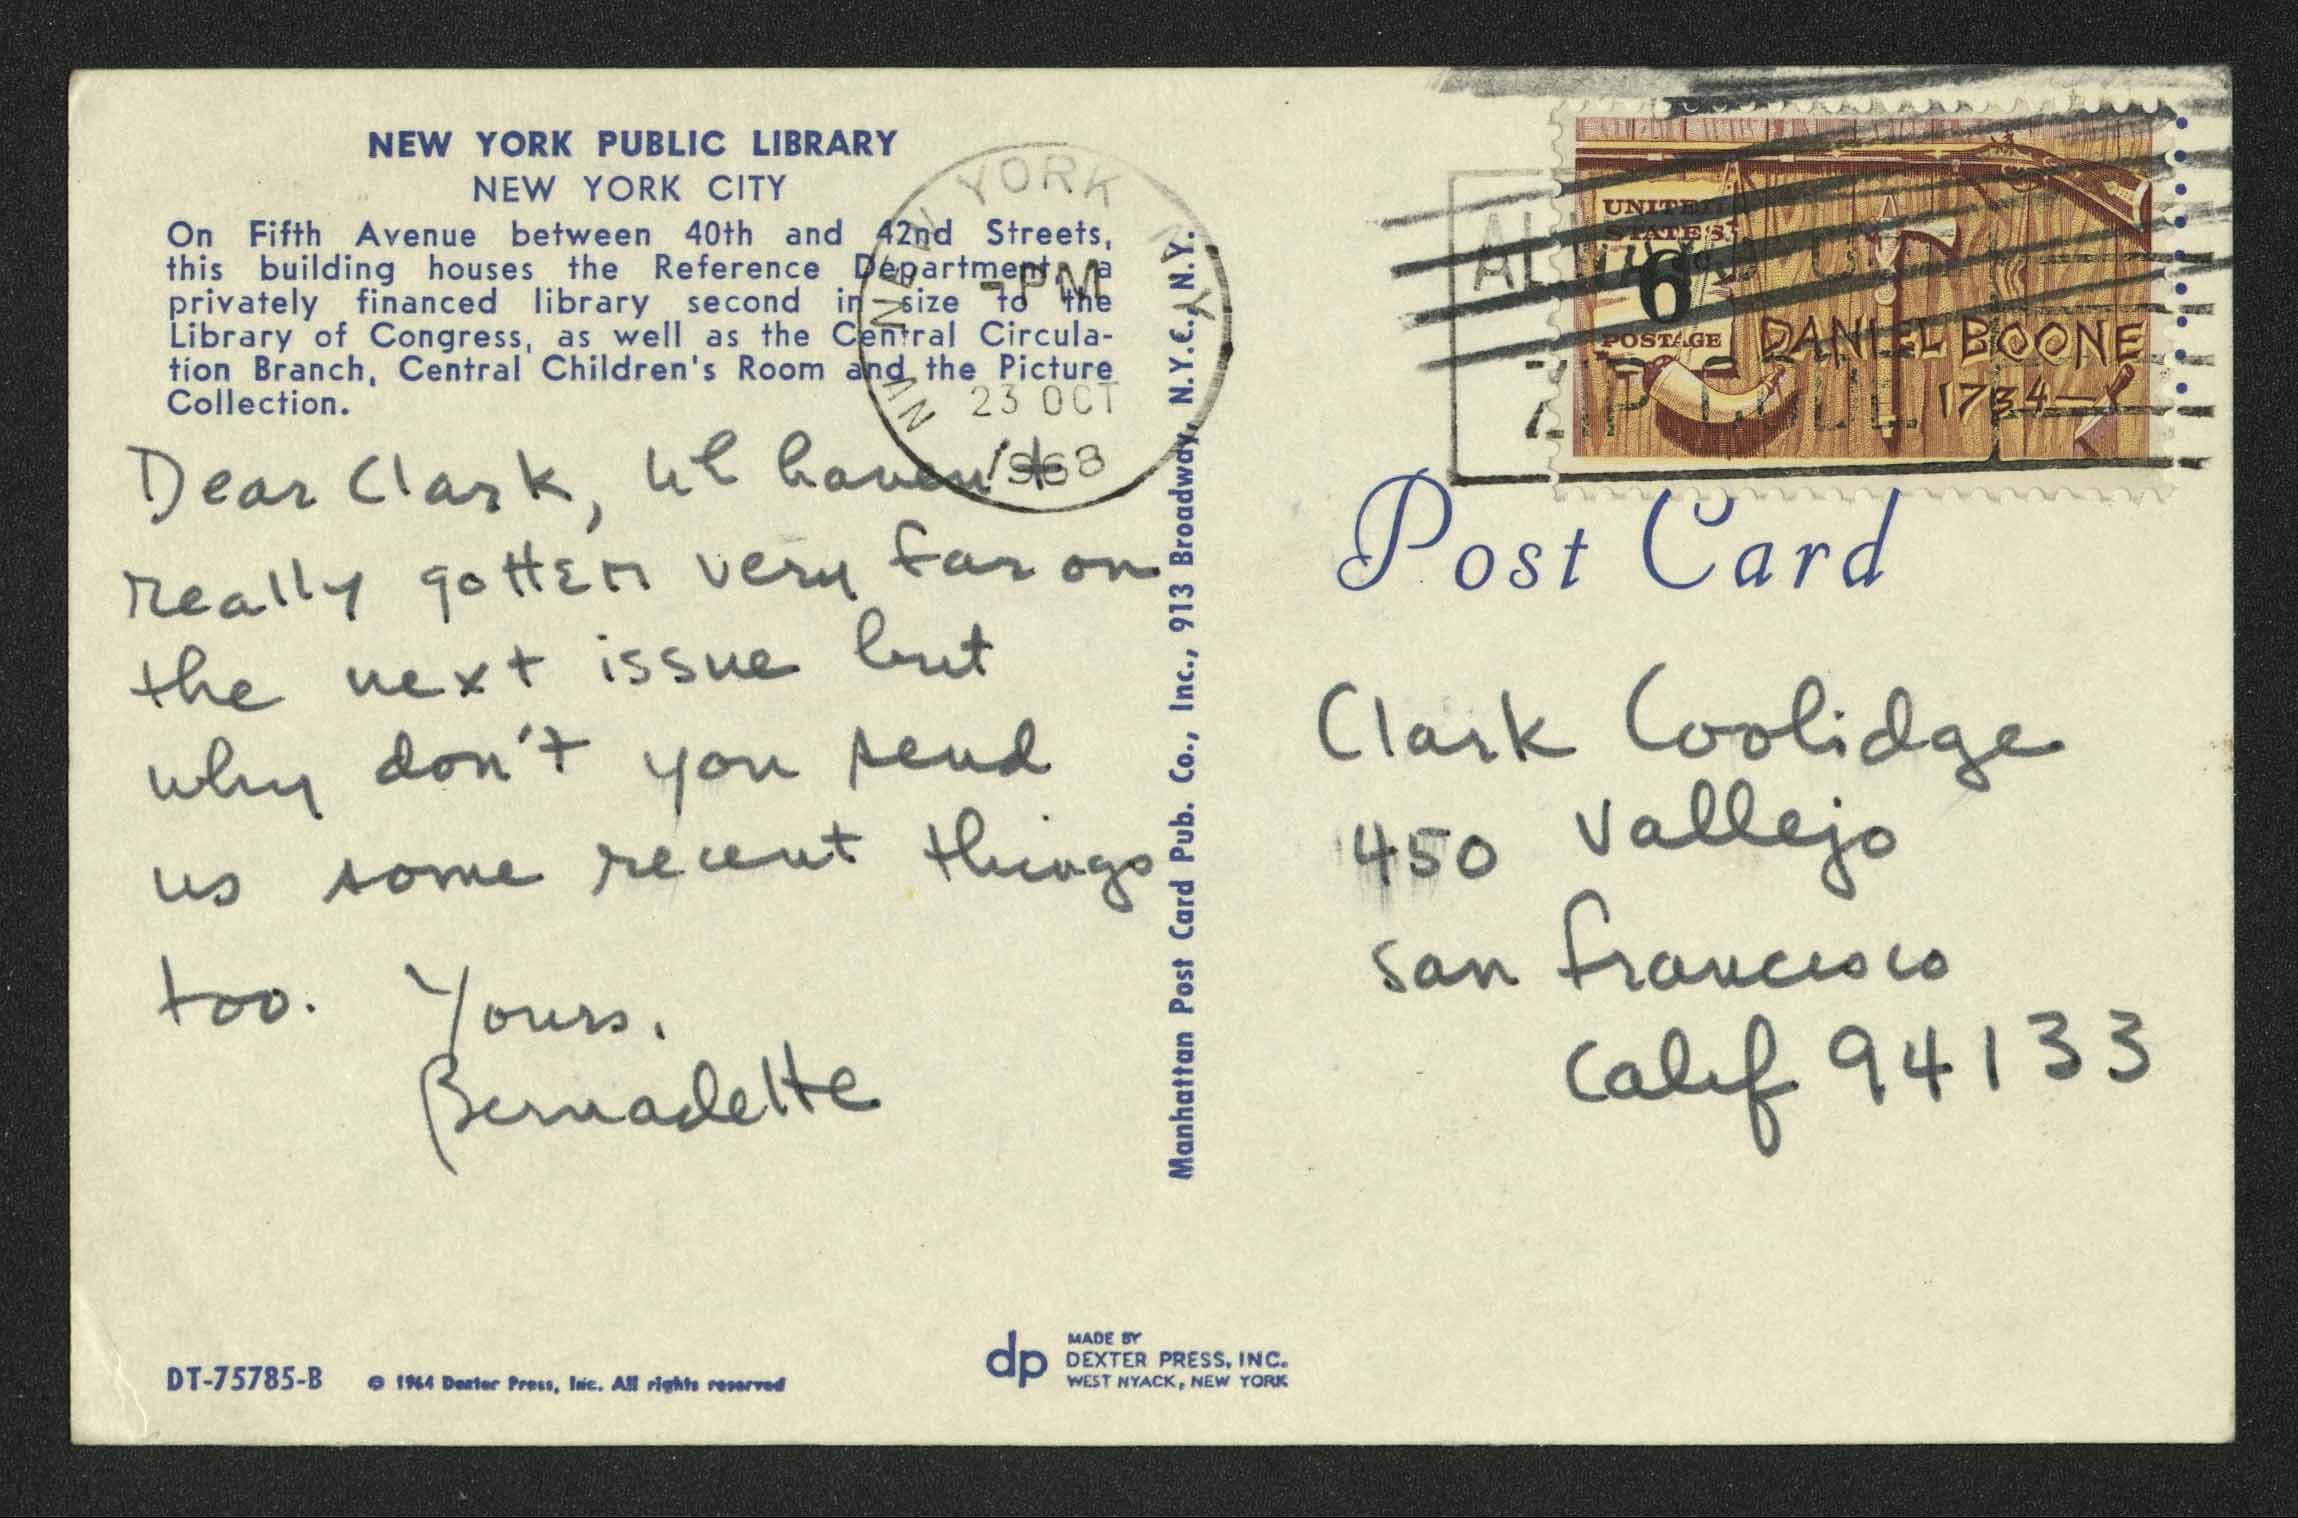 NEW YORK PUBLIC LIBRARY
NEW YORK CITY
On Fifth Avenue between 40th and 42nd Streets,
this building houses the Reference Department, a
privately financed library second in size to the
Library of Congress, as well as the Central Circula-
tion Branch, Central Children's Room and the Picture
Collection.
NEW YORK N.Y.
PM
23 OCT
1968
Dear Clark, We haven't
really gotten very far on
the next issue but
why don't you send
us some recent things
too. Yours,
Bernadette
Manhattan Post Card Pub. Co., Inc., 913 Broadway, N.Y.C., N.Y.
UNITED
STATES
6c
POSTAGE
DANIEL BOONE
1734
ZIP CODE
Post Card
Clark Coolidge
450 Vallejo
San Francisco
Calif 94133
DT-75785-B
© 1964 Dexter Press, Inc. All rights reserved
dp
MADE BY
DEXTER PRESS, INC.
WEST NYACK, NEW YORK